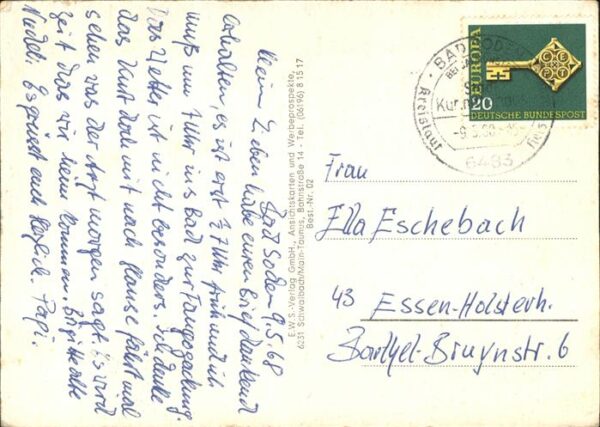 Bad Soden 9.5.68
Mein Lieben habe euren Brief dankend
erhalten, es ist erst ½ 7 Uhr früh und ich
muß um 7 Uhr ins Bad zur Fangopackung.
Das Wetter ist nicht besonders. Ich denke
das Kurt doch mit nach Hause fährt mal
sehen was der Arzt morgen sagt. Es wird
Zeit das wir heim kommen. Brigitte alte
Nudel. Es grüßt euch herzlich. Papi.
E.W.S.-Verlag GmbH., Ansichtskarten und Werbeprospekte,
6231 Schwalbach/Main-Taunus, Bahnstraße 14 - Tel. (06196) 8 15 17
Best.-Nr. 02
EUROPA
CEPT
20
DEUTSCHE BUNDESPOST
BAD SODEN
Kur
Kreislauf
6483
Frau
Ella Eschebach
43 Essen-Holsterh.
Barthel-Bruynstr. 6